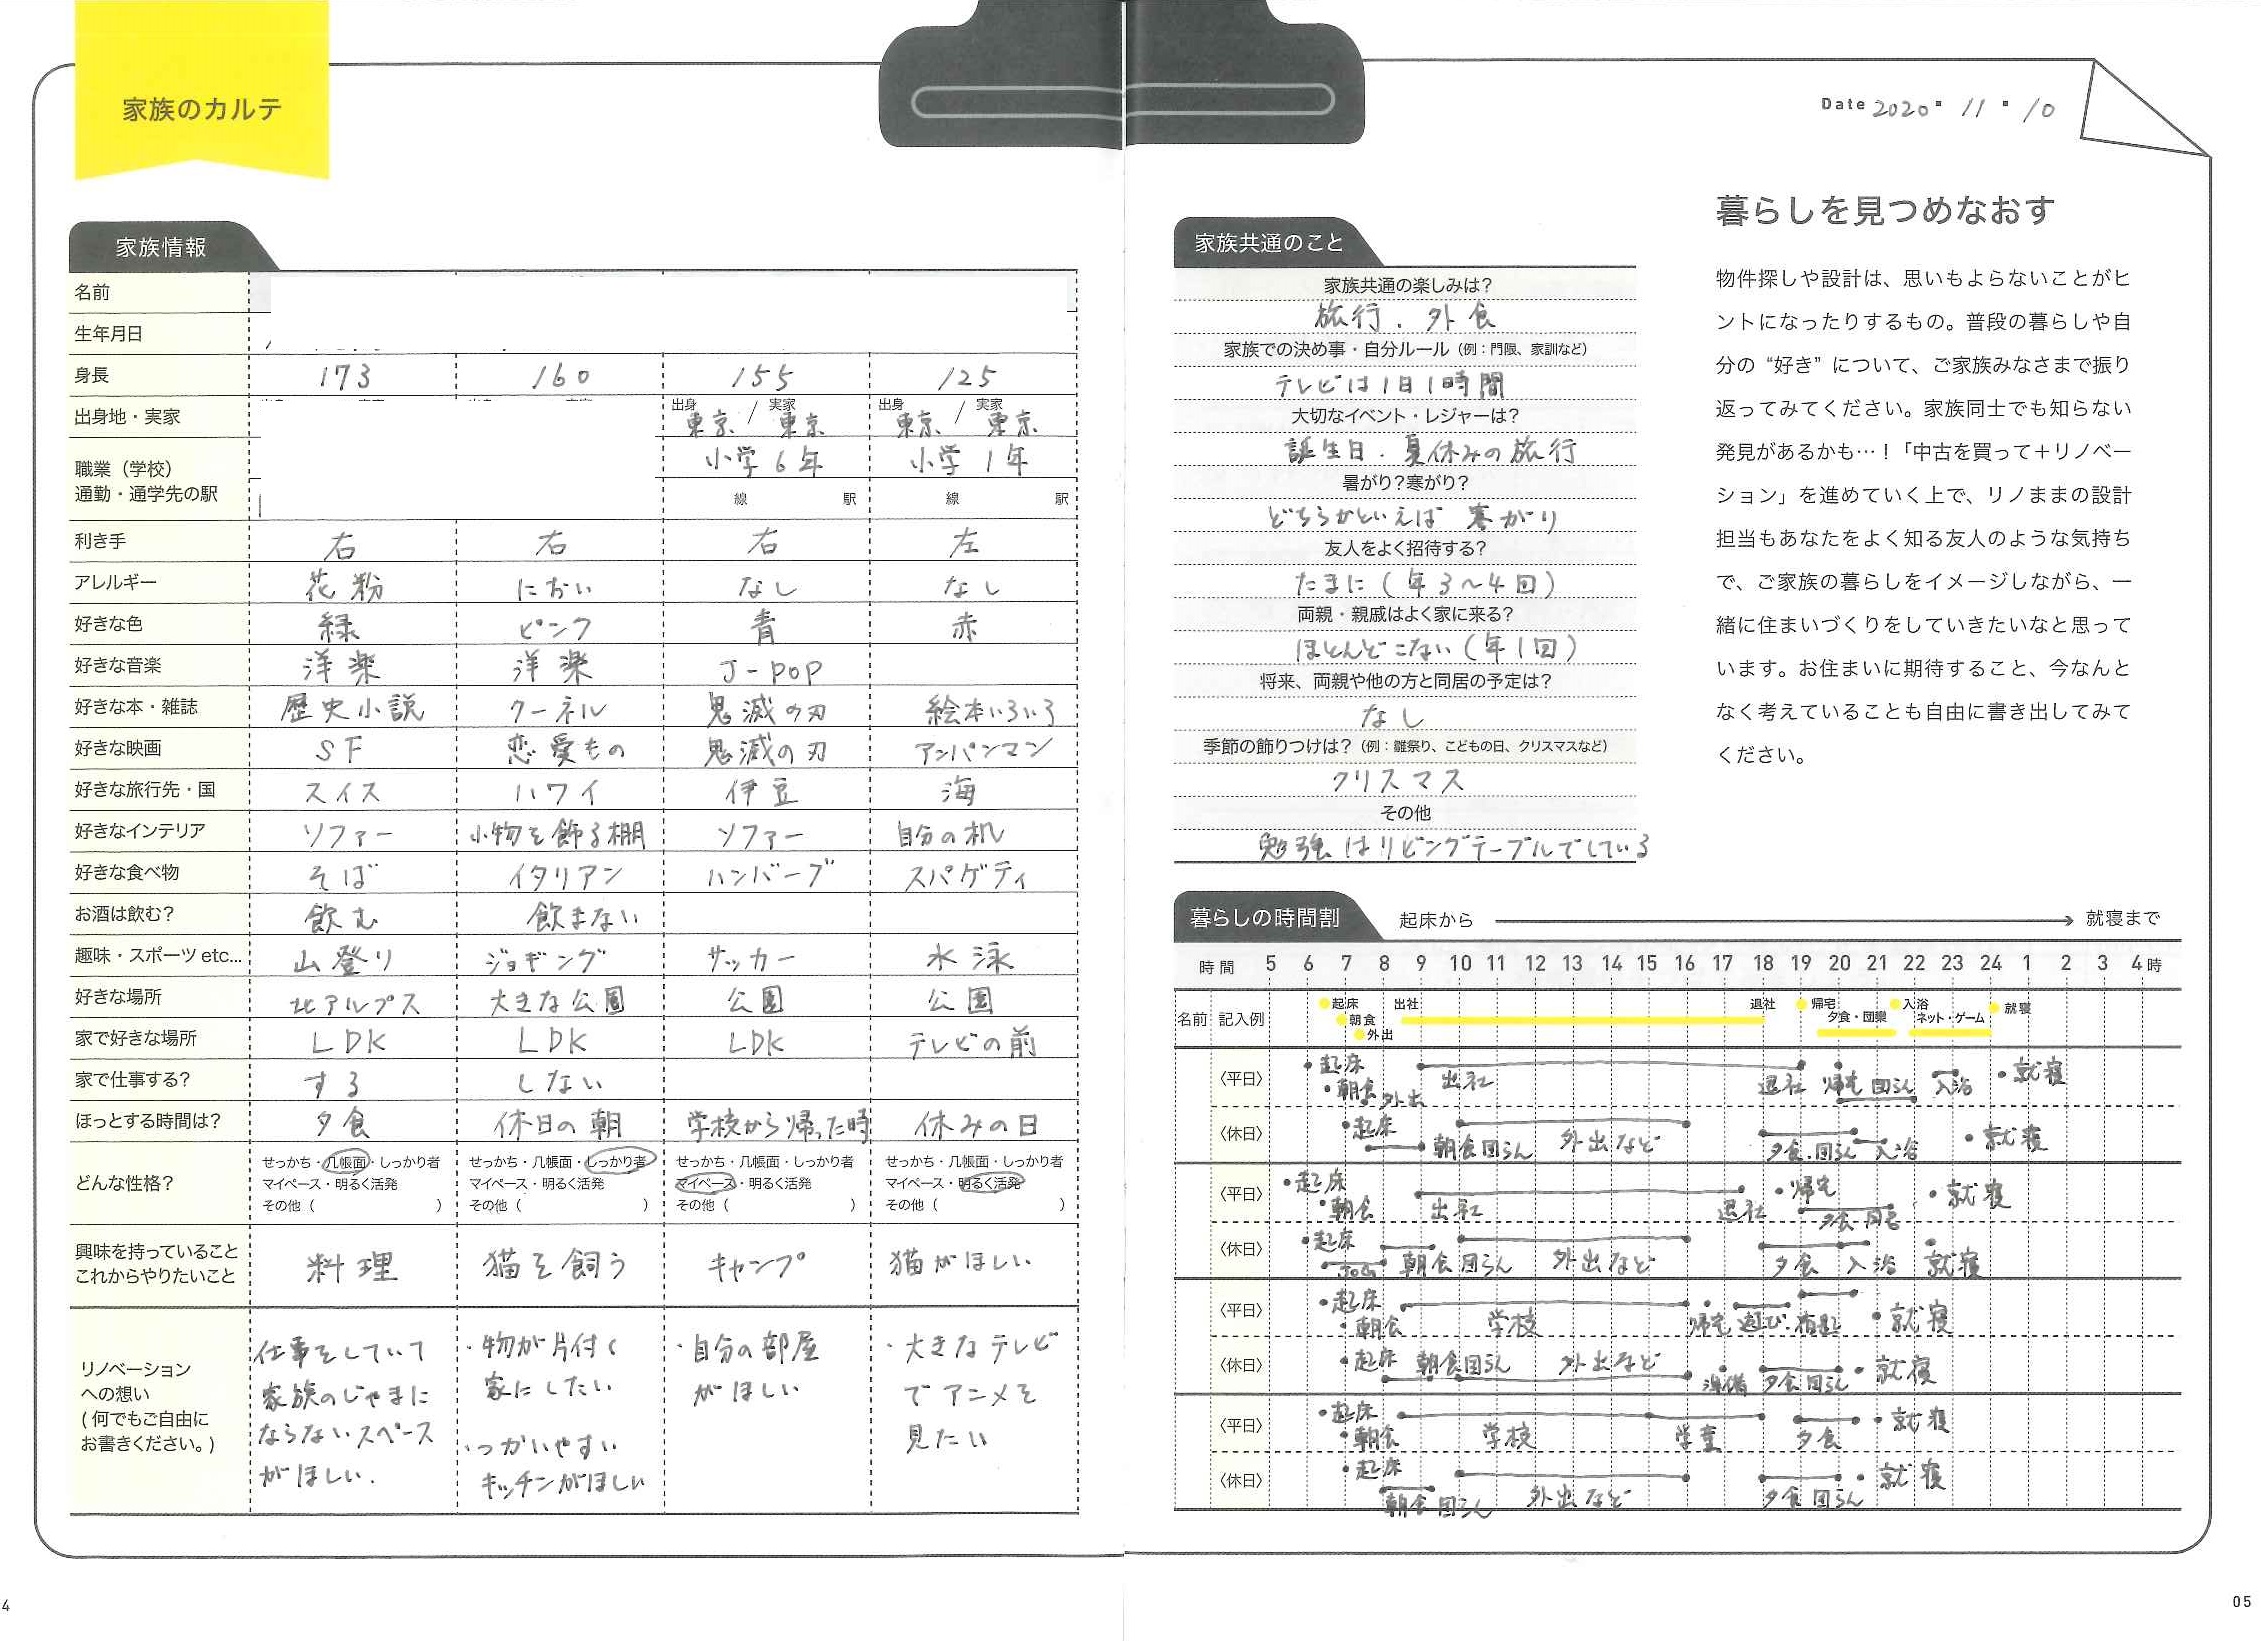 家族のカルテ
Date 2020・11・10
家族情報
名前
生年月日
身長 173 160 155 125
出身地・実家 出身 / 実家 東京 / 東京 出身 / 実家 東京 / 東京
職業（学校） 小学6年 小学1年
通勤・通学先の駅 線 駅 線 駅
利き手 右 右 右 左
アレルギー 花粉 におい なし なし
好きな色 緑 ピンク 青 赤
好きな音楽 洋楽 洋楽 J-POP
好きな本・雑誌 歴史小説 クーネル 鬼滅の刃 絵本いろいろ
好きな映画 SF 恋愛もの 鬼滅の刃 アンパンマン
好きな旅行先・国 スイス ハワイ 伊豆 海
好きなインテリア ソファー 小物を飾る棚 ソファー 自分の机
好きな食べ物 そば イタリアン ハンバーグ スパゲティ
お酒は飲む？ 飲む 飲まない
趣味・スポーツ etc... 山登り ジョギング サッカー 水泳
好きな場所 北アルプス 大きな公園 公園 公園
家で好きな場所 LDK LDK LDK テレビの前
家で仕事する？ する しない
ほっとする時間は？ 夕食 休日の朝 学校から帰った時 休みの日
どんな性格？
せっかち・几帳面・しっかり者
マイペース・明るく活発
その他（ ）
せっかち・几帳面・しっかり者
マイペース・明るく活発
その他（ ）
せっかち・几帳面・しっかり者
マイペース・明るく活発
その他（ ）
せっかち・几帳面・しっかり者
マイペース・明るく活発
その他（ ）
興味を持っていること
これからやりたいこと
料理 猫を飼う キャンプ 猫がほしい
リノベーション
への想い
(何でもご自由に
お書きください。)
仕事をしていて
家族のじゃまに
ならないスペース
がほしい.
・物が片付く
家にしたい
・つかいやすい
キッチンがほしい
・自分の部屋
がほしい
・大きなテレビ
でアニメを
見たい
家族共通のこと
家族共通の楽しみは？
旅行．外食
家族での決め事・自分ルール（例：門限、家訓など）
テレビは1日1時間
大切なイベント・レジャーは？
誕生日．夏休みの旅行
暑がり？寒がり？
どちらかといえば 寒がり
友人をよく招待する？
たまに(年3〜4回)
両親・親戚はよく家に来る？
ほとんどこない(年1回)
将来、両親や他の方と同居の予定は？
なし
季節の飾りつけは？（例：雛祭り、こどもの日、クリスマスなど）
クリスマス
その他
勉強はリビングテーブルでしている
暮らしを見つめなおす
物件探しや設計は、思いもよらないことがヒ
ントになったりするもの。普段の暮らしや自
分の“好き”について、ご家族みなさまで振り
返ってみてください。家族同士でも知らない
発見があるかも…！「中古を買って＋リノベー
ション」を進めていく上で、リノままの設計
担当もあなたをよく知る友人のような気持ち
で、ご家族の暮らしをイメージしながら、一
緒に住まいづくりをしていきたいなと思って
います。お住まいに期待すること、今なんと
なく考えていることも自由に書き出してみて
ください。
暮らしの時間割 起床から 就寝まで
時間 5 6 7 8 9 10 11 12 13 14 15 16 17 18 19 20 21 22 23 24 1 2 3 4時
名前 記入例 起床 朝食 外出 出社 退社 帰宅 夕食・団欒 入浴 ネット・ゲーム 就寝
〈平日〉 起床 朝食 外出 出社 退社 帰宅 団らん 入浴 就寝
〈休日〉 起床 朝食団らん 外出など 夕食．団らん 入浴 就寝
〈平日〉 起床 朝食 出社 退社 帰宅 夕食 就寝
〈休日〉 起床 朝食団らん 外出など 夕食 入浴 就寝
〈平日〉 起床 朝食 学校 帰宅 遊び 就寝
〈休日〉 起床 朝食団らん 外出など 準備 夕食団らん 就寝
〈平日〉 起床 朝食 学校 学童 夕食 就寝
〈休日〉 起床 朝食団らん 外出など 夕食団らん 就寝
4
05